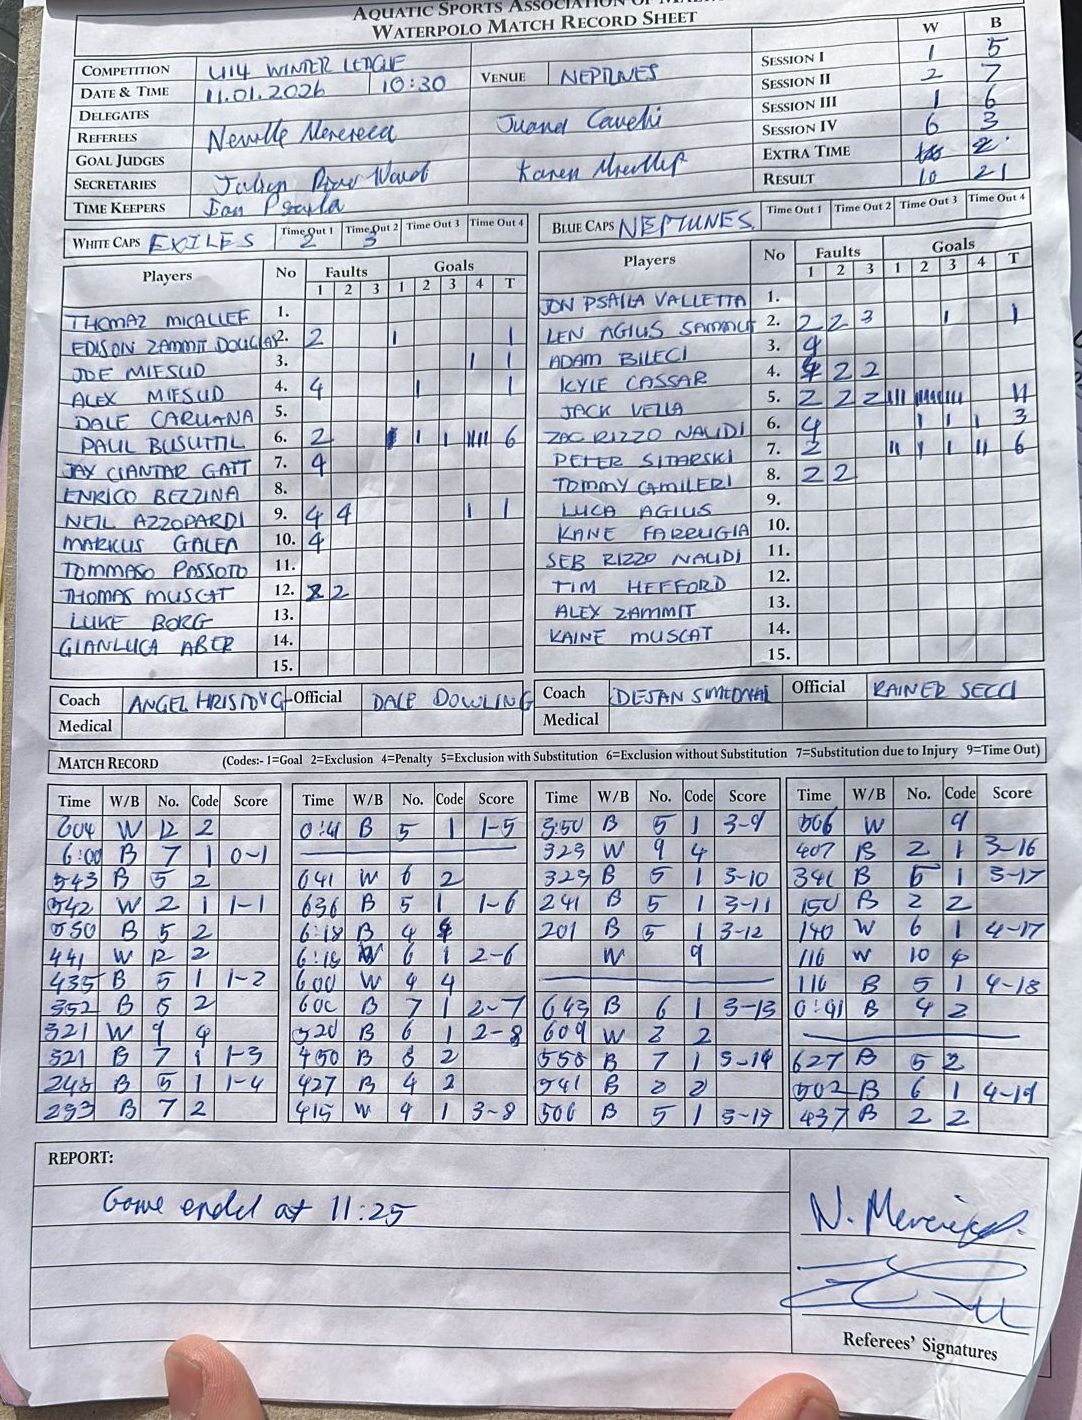 AQUATIC SPORTS ASSOCIATION OF
WATERPOLO MATCH RECORD SHEET
W B
COMPETITION U14 WINTER LEAGUE
DATE & TIME 11.01.2026 10:30 VENUE NEPTUNES
DELEGATES
REFEREES Neville
GOAL JUDGES
SECRETARIES
TIME KEEPERS Ian Psaila
Karen
SESSION I 1 5
SESSION II 2 7
SESSION III 1 6
SESSION IV 6 3
EXTRA TIME
RESULT 10 21
WHITE CAPS EXILES Time Out 1 2 Time Out 2 3 Time Out 3 Time Out 4
Players No Faults Goals
1 2 3 1 2 3 4 T
THOMAZ MICALLEF 1.
EDISON ZAMMIT DOUGLAS 2. 2 1 1
JOE MIFSUD 3. 1 1
ALEX MIFSUD 4. 4 1 1
DALE CARUANA 5.
PAUL BUSUTTIL 6. 2 1 1 IIII 6
JAY CIANTAR GATT 7. 4
ENRICO BEZZINA 8.
NEIL AZZOPARDI 9. 4 4 1 1
MARKUS GALEA 10. 4
TOMMASO PASSOTO 11.
THOMAS MUSCAT 12. 2 2
LUKE BORG 13.
GIANLUCA ABER 14.
15.
Coach ANGEL HRISTOV Official DALE DOWLING
Medical
BLUE CAPS NEPTUNES Time Out 1 Time Out 2 Time Out 3 Time Out 4
Players No Faults Goals
1 2 3 1 2 3 4 T
JON PSAILA VALLETTA 1.
LEN AGIUS SAMMUT 2. 2 2 3 1 1
ADAM BILECI 3. 4
KYLE CASSAR 4. 4 2 2
JACK VELLA 5. 2 2 2 11
ZAC RIZZO NAUDI 6. 4 1 1 1 3
PETER SITARSKI 7. 2 11 1 1 11 6
TOMMY CAMILERI 8. 2 2
LUCA AGIUS 9.
KANE FARRUGIA 10.
SEB RIZZO NAUDI 11.
TIM HEFFORD 12.
ALEX ZAMMIT 13.
KAINE MUSCAT 14.
15.
Coach DEJAN Official RAINER SECCI
Medical
MATCH RECORD (Codes:- 1=Goal 2=Exclusion 4=Penalty 5=Exclusion with Substitution 6=Exclusion without Substitution 7=Substitution due to Injury 9=Time Out)
Time W/B No. Code Score
604 W 12 2
6:00 B 7 1 0-1
543 B 5 2
542 W 2 1 1-1
550 B 5 2
441 W 12 2
435 B 5 1 1-2
352 B 5 2
321 W 9 4
321 B 7 1 1-3
248 B 5 1 1-4
233 B 7 2
Time W/B No. Code Score
0:41 B 5 1 1-5
641 W 6 2
636 B 5 1 1-6
6:18 B 4 4
6:18 W 6 1 2-6
600 W 4 4
600 B 7 1 2-7
520 B 6 1 2-8
450 B 8 2
427 B 4 2
415 W 4 1 3-8
Time W/B No. Code Score
3:50 B 5 1 3-9
323 W 9 4
323 B 5 1 3-10
241 B 5 1 3-11
201 B 5 1 3-12
W 9
643 B 6 1 3-13
609 W 2 2
558 B 7 1 3-14
541 B 2 2
506 B 5 1 3-15
Time W/B No. Code Score
506 W 9
407 B 2 1 3-16
341 B 5 1 3-17
150 B 2 2
140 W 6 1 4-17
116 W 10 4
116 B 5 1 4-18
0:41 B 4 2
627 B 5 2
502 B 6 1 4-19
437 B 2 2
REPORT:
Game ended at 11:25
Referees' Signatures